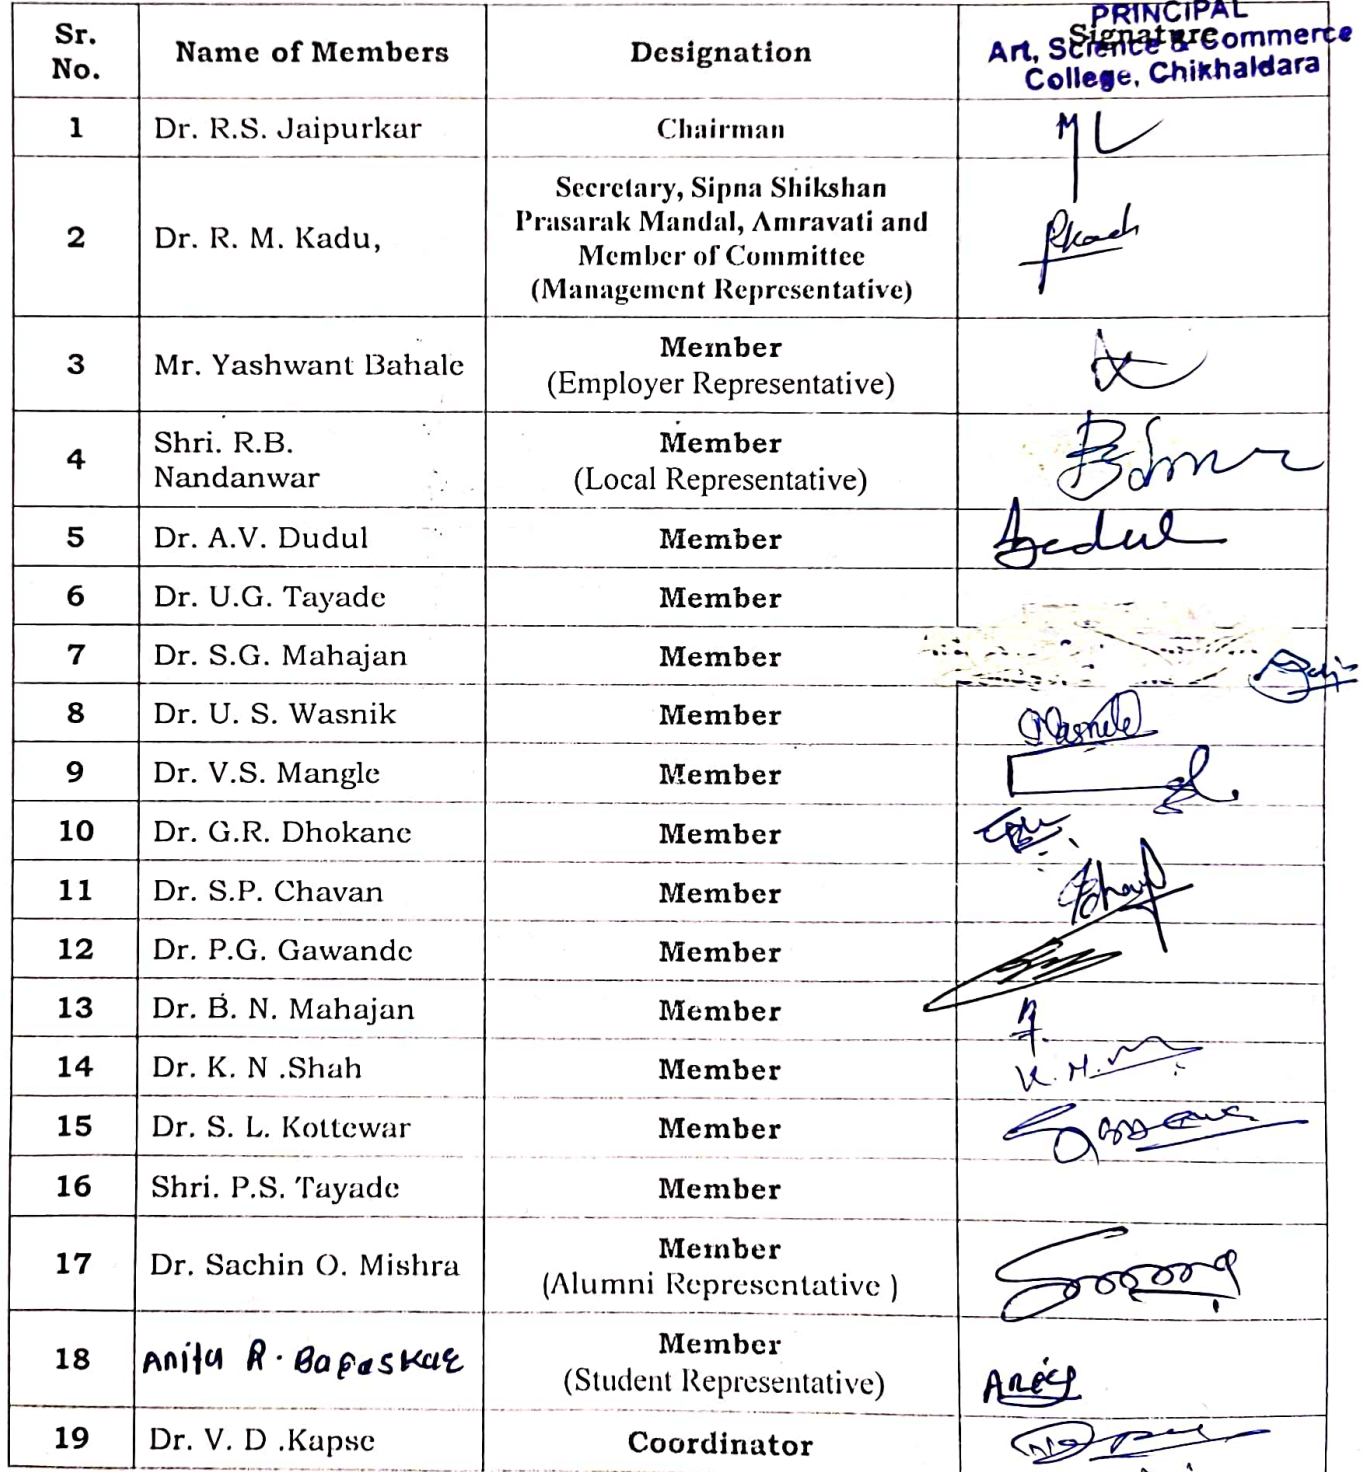 PRINCIPAL
Sr. No. Name of Members Designation Signature
Art, Science & Commerce
College, Chikhaldara
1 Dr. R.S. Jaipurkar Chairman
2 Dr. R. M. Kadu, Secretary, Sipna Shikshan
Prasarak Mandal, Amravati and
Member of Committee
(Management Representative)
3 Mr. Yashwant Bahale Member
(Employer Representative)
4 Shri. R.B. Member
Nandanwar (Local Representative)
5 Dr. A.V. Dudul Member
6 Dr. U.G. Tayade Member
7 Dr. S.G. Mahajan Member
8 Dr. U. S. Wasnik Member
9 Dr. V.S. Mangle Member
10 Dr. G.R. Dhokane Member
11 Dr. S.P. Chavan Member
12 Dr. P.G. Gawande Member
13 Dr. B. N. Mahajan Member
14 Dr. K. N .Shah Member
15 Dr. S. L. Kottewar Member
16 Shri. P.S. Tayade Member
17 Dr. Sachin O. Mishra Member
(Alumni Representative )
18 Anita R. Member
(Student Representative)
19 Dr. V. D .Kapse Coordinator